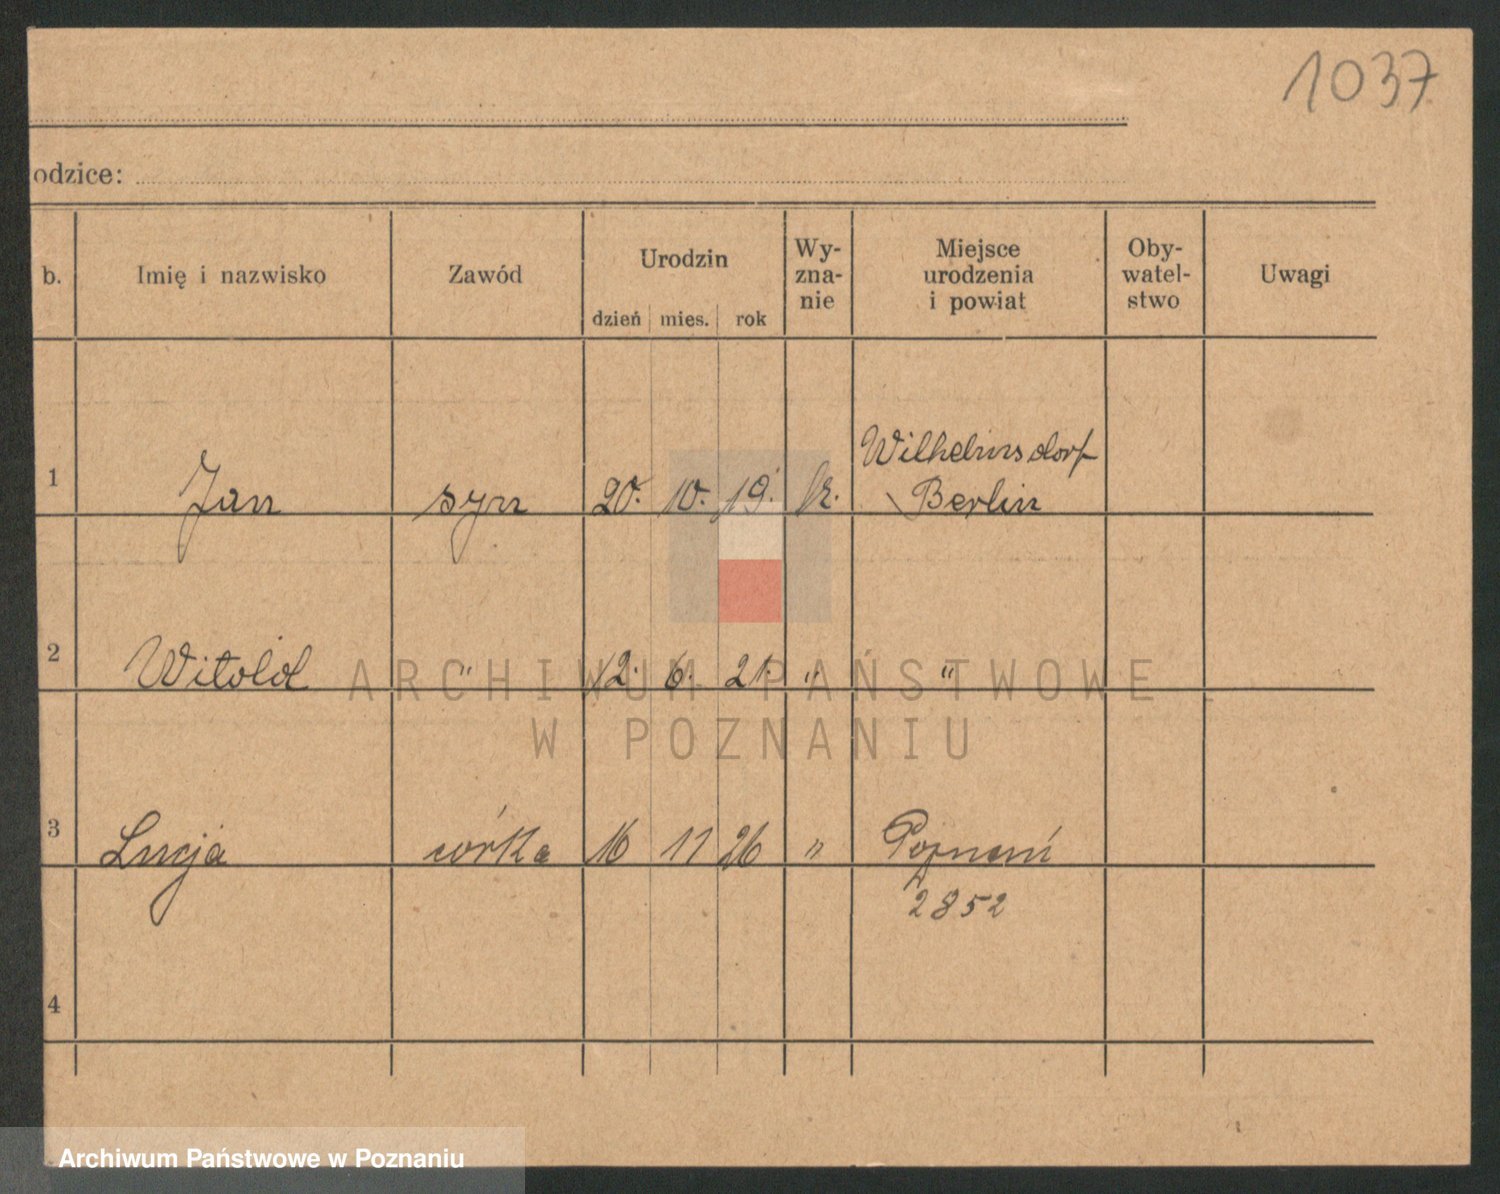 1037
odzice:
b. Imię i nazwisko Zawód Urodzin Wy-zna-nie Miejsce urodzenia i powiat Oby-watel-stwo Uwagi
dzień mies. rok
Wilhelmsdorf
1 Jan syn 20. 10. 19. k. Berlin
2 Witold " 12. 6. 21. " "
ARCHIWUM PAŃSTWOWE
W POZNANIU
3 Lucja córka 16 11 26 " Poznań
2852
4
Archiwum Państwowe w Poznaniu